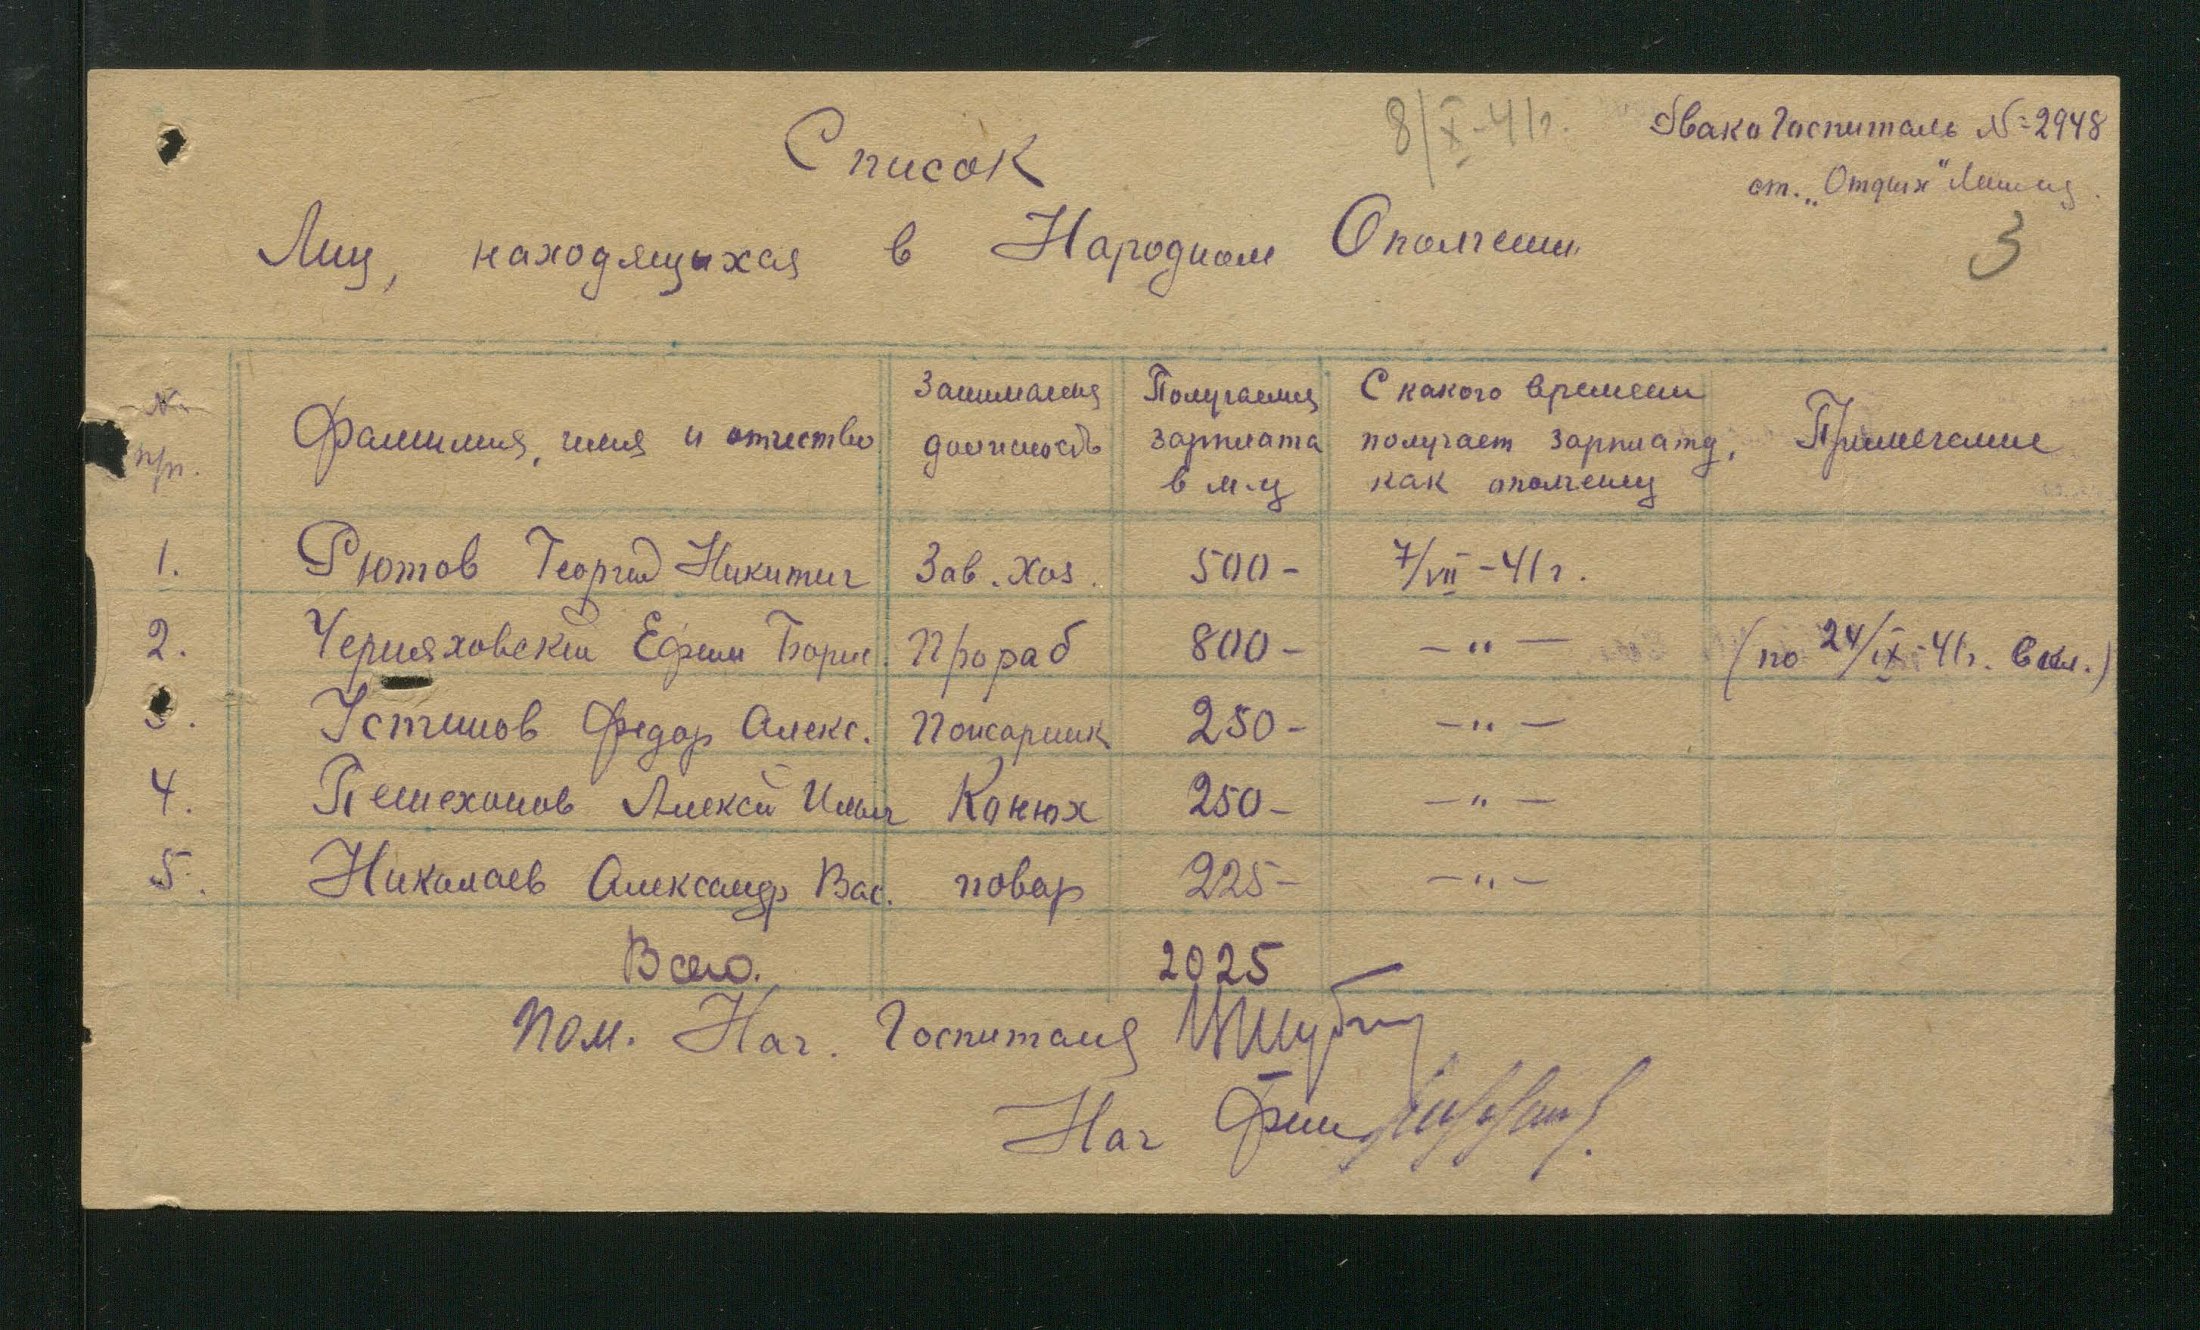 8/X-41г.
Эвакогоспиталь №2948
ст. „Отдых“
3
Список
Лиц, находящихся в Народном Ополчении
№ п/п. Фамилия, имя и отчество Занимаемая должность Получаемая зарплата в м-ц С какого времени получает зарплату, как ополченец Примечание
1. Рютов Георгий Никитич Зав. Хоз. 500- 7/VII-41г.
2. Черняховский Ефим Борис. Прораб 800- -"- (по 24/IX-41г. вкл.)
3. Устинов Федор Алекс. Пожарник 250- -"-
4. Пешехонов Алексей Ильич Конюх 250- -"-
5. Николаев Александр Вас. повар 225- -"-
Всего. 2025
Пом. Нач. Госпиталя
Нач Фин